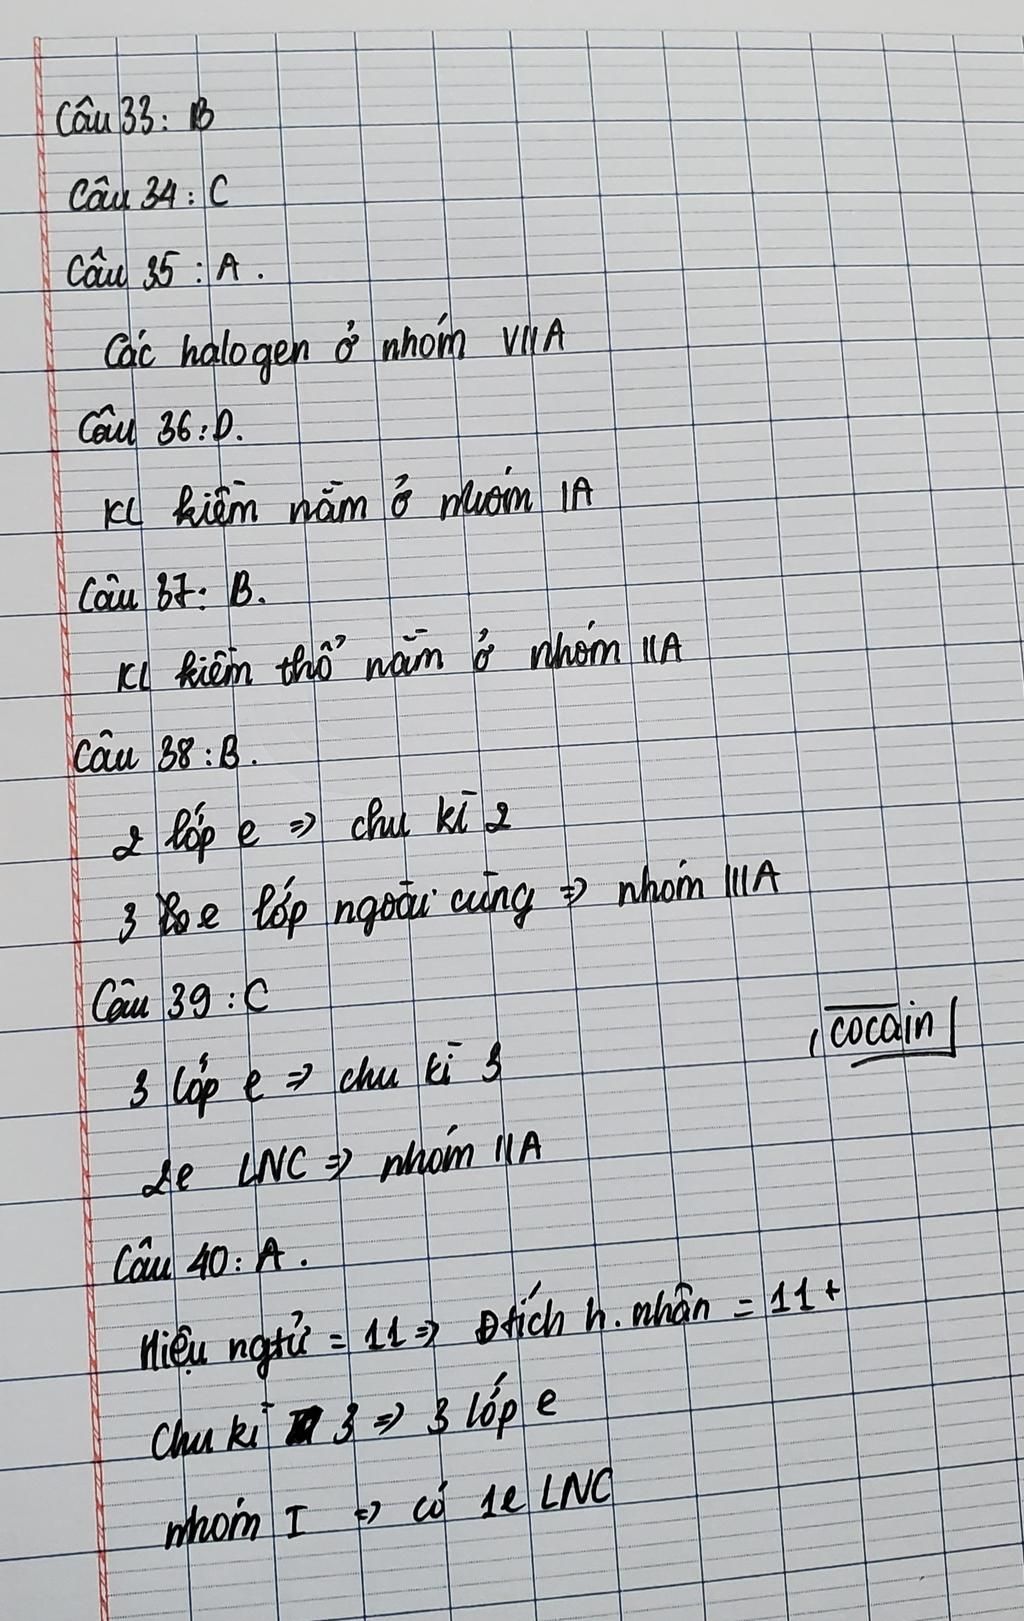 Câu 33: B
Câu 34: C
Câu 35: A.
Các halogen ở nhóm VIIA
Câu 36: D.
KL kiềm nằm ở nhóm IA
Câu 37: B.
KL kiềm thổ nằm ở nhóm IIA
Câu 38: B.
2 lớp e => chu kì 2
3 e lớp ngoài cùng => nhóm IIIA
Câu 39: C
cocain
3 lớp e => chu kì 3
2e LNC => nhóm IIA
Câu 40: A.
Hiệu ngtử = 11 => Đtích h.nhân = 11+
Chu kì 3 => 3 lớp e
nhóm I => có 1e LNC